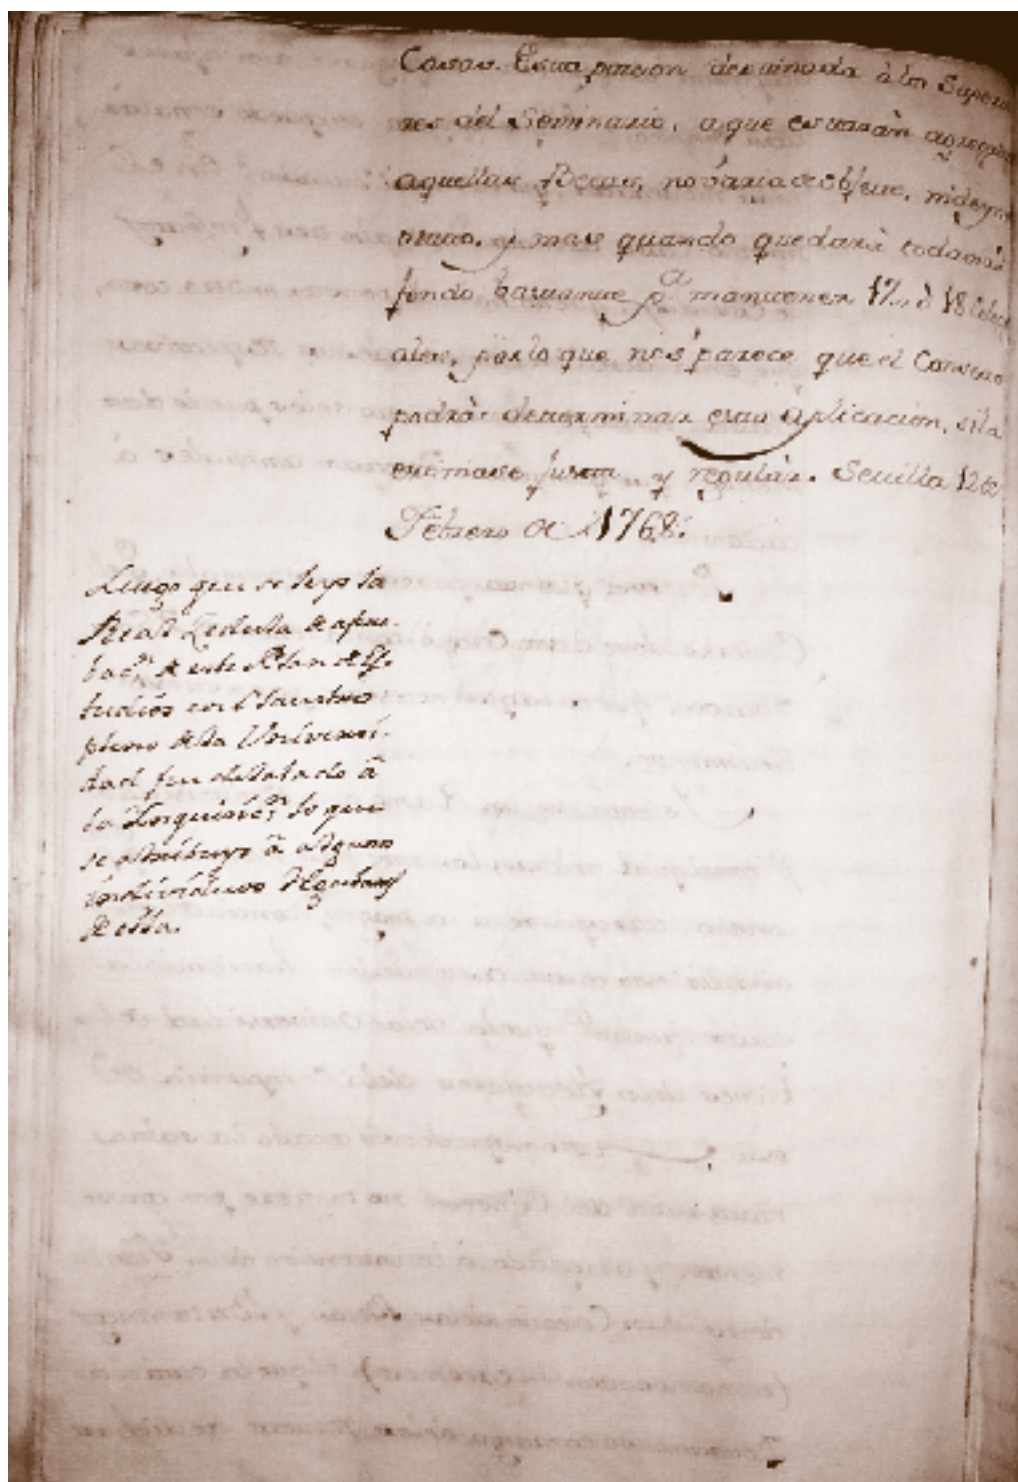 Casas. Esta porcion destinada à los Superio
res del Seminario, a que estarán agregadas
aquellas Becas, no varia de objeto, ni de
y mas quando quedará todavia
fondo bastante pª mantener 17. ò 18 Cole
ales, por lo que nos parece que el Consejo
podrá determinar esta àplicacion, si la
estimase justa y regulár. Sevilla 12 de
Febrero de 1768.
Luego que se leyo la
Real Cedula de apro-
bacⁿ. de este Plan de Es-
tudios en Claustro
pleno de la Universi-
dad fue delatado â
la Inquisicⁿ. lo que
se atribuyo â alguno
individuos Regulares
de ella.